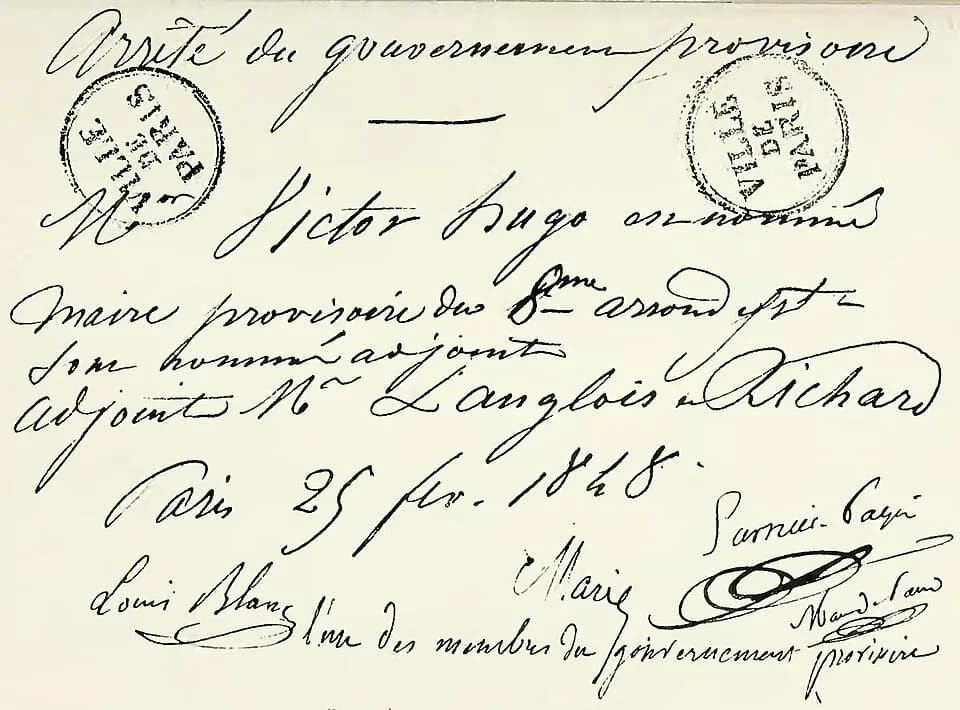 Arrêté du gouvernement provisoire
VILLE DE PARIS
VILLE DE PARIS
Victor Hugo est nommé
maire provisoire du 8me arrondisst
sont nommés adjoints
adjoints Mr Langlois et Richard
Paris 25 fev. 1848.
Garnier-Pagès
Louis Blanc
Marie
l'un des membres du gouvernement provisoire